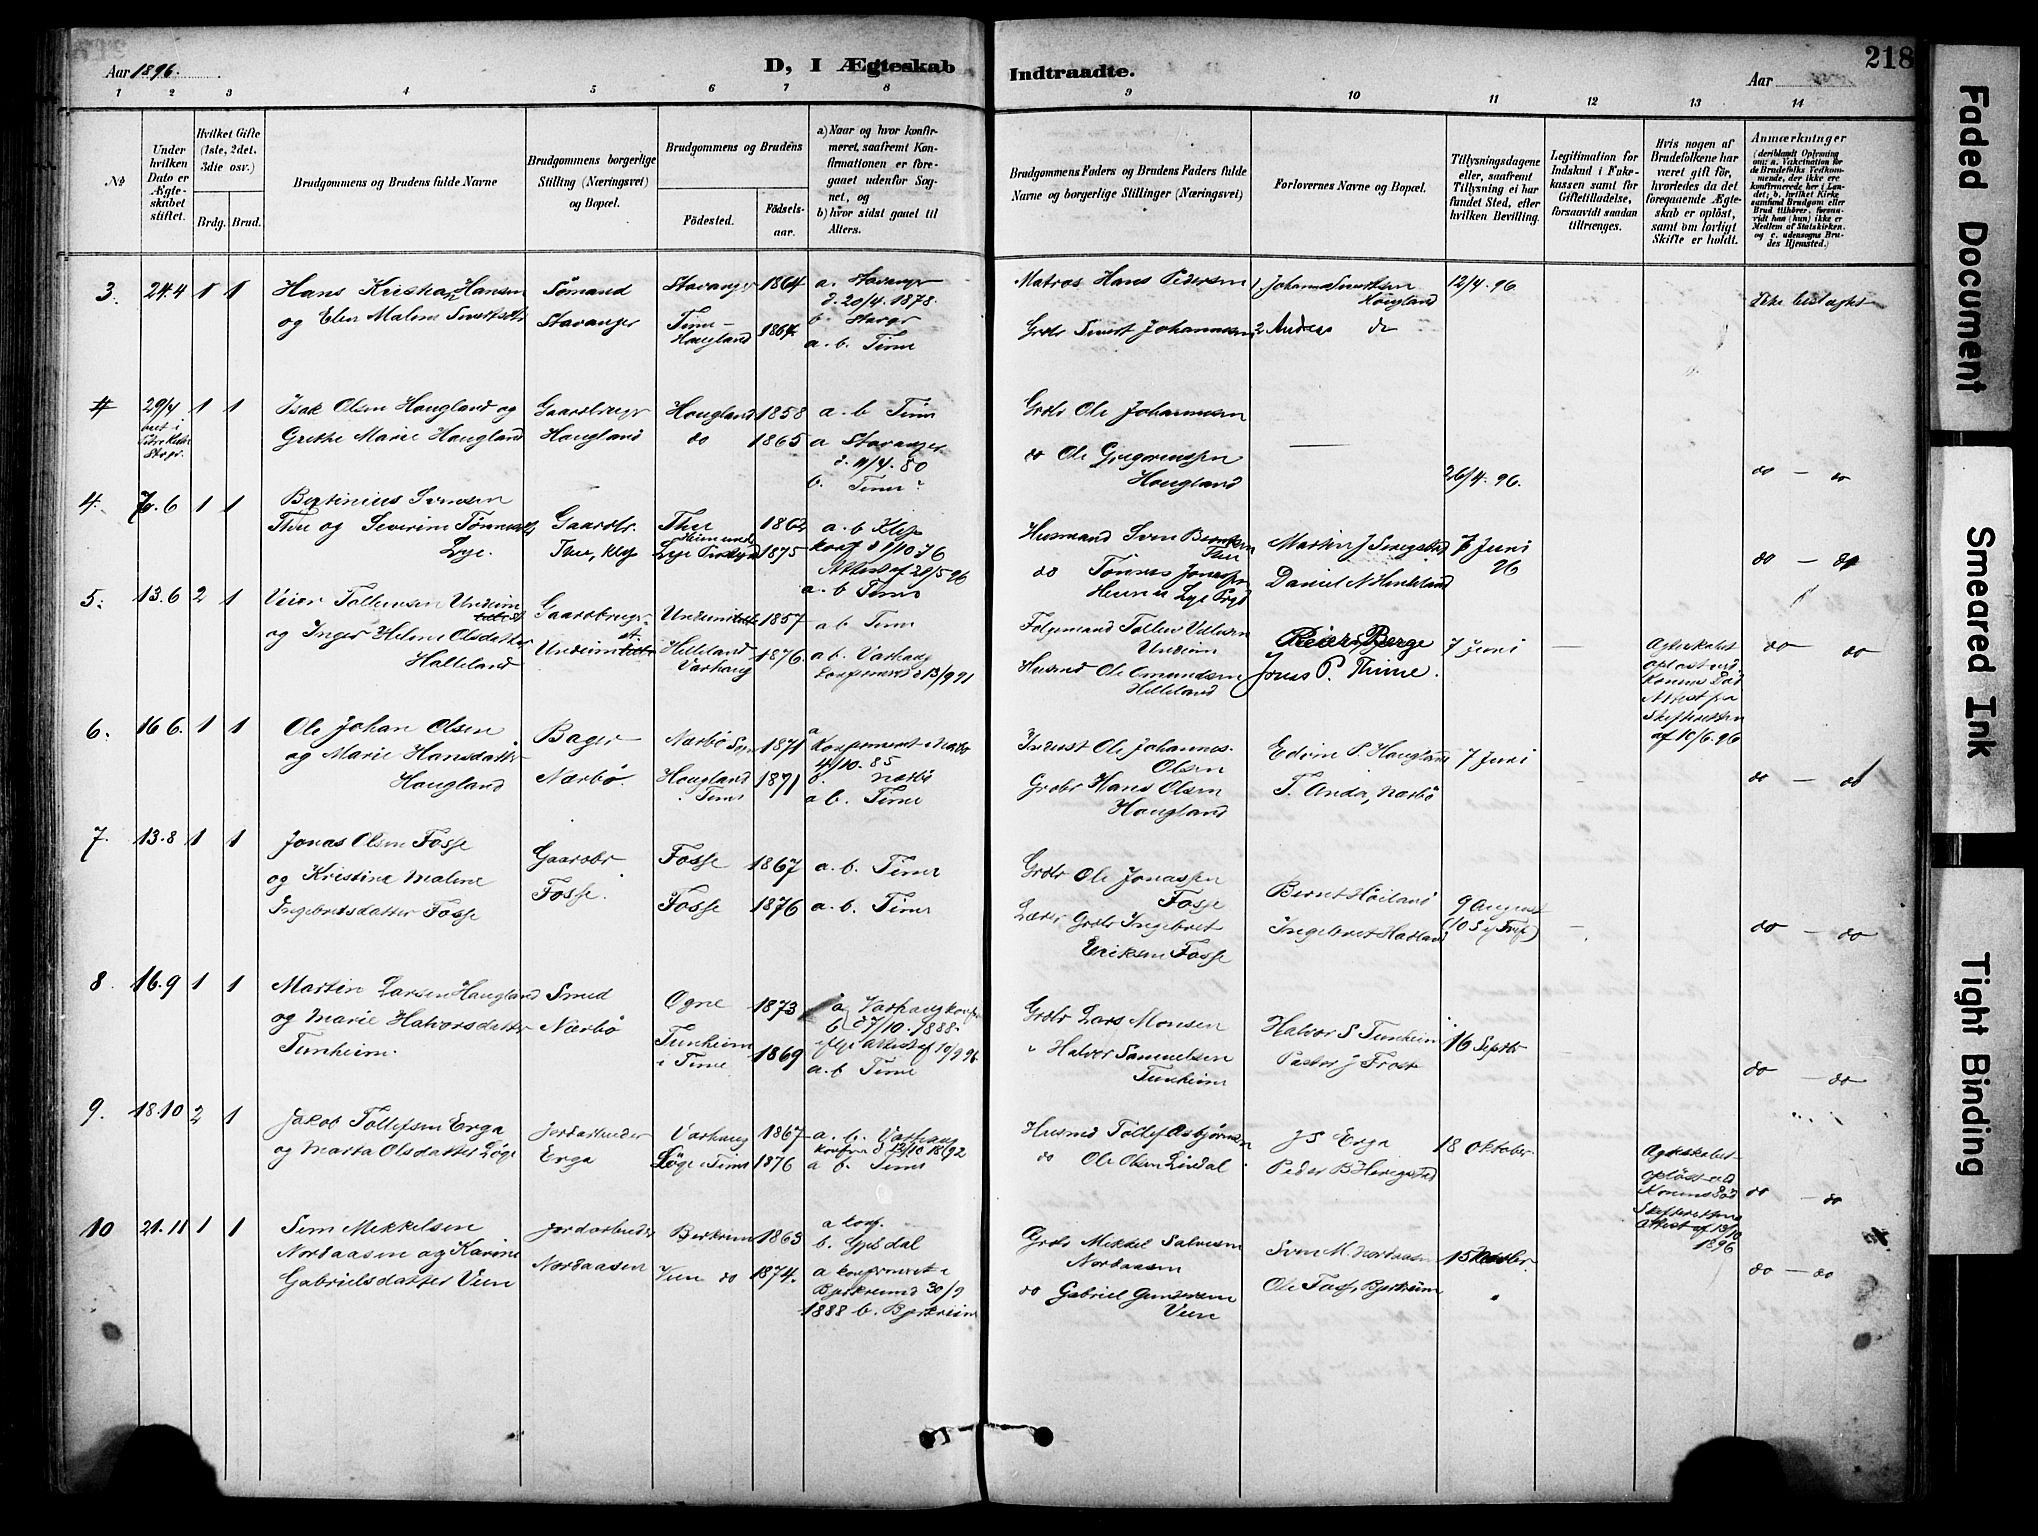 Aar 1896.
D, I Ægteskab
Indtraadte.
Aar
218
1 2 3 4 5 6 7 8 9 10 11 12 13 14
No
Under hvilken Dato er Ægteskabet stiftet.
Hvilket Gifte (1ste, 2det, 3die osv.)
Brdg. Brud.
Brudgommens og Brudens fulde Navne
Brudgommens borgerlige Stilling (Næringsvei) og Bopæl.
Brudgommens og Brudens
Födested.
Födselsaar.
a) Naar og hvor konfirmeret, saafremt Konfirmationen er foregaaet udenfor Sognet, og
b) hvor sidst gaaet til Alters.
Brudgommens Faders og Brudens Faders fulde Navne og borgerlige Stillinger (Næringsvei)
Forlovernes Navne og Bopæl.
Tillysningsdagene eller, saafremt Tillysning ei har fundet Sted, efter hvilken Bevilling.
Legitimation for Indskud i Enkekassen samt for Giftetilladelse, forsaavidt saadan tiltrænges.
Hvis nogen af Brudefolkene har været gift för, hvorledes da det foregaaende Ægteskab er oplöst, samt om lovligt Skifte er holdt.
Anmærkninger
(deriblandt Oplysning om: a. Vakcination for de Brudefolks Vedkommende, der ikke ere konfirmerede her i Landet; b. hvilket Kirkesamfund Brudgom eller Brud tilhörer, forsaavidt han (hun) ikke er Medlem af Statskirken, og c. udensogns Brudes Hjemsted.)
3. 24.4 1 1 Hans Kristian Hansen Sömand Stavanger 1864 a. Stavanger
d. 20/4. 1878.
og Elen Malene Sivertsdtr Stavanger Time - Haugland 1864 b. Stavgr
a. b. Time
Matros Hans Pedersen 1. Johannes Sivertsen Haugland 12/4. 96. Ikke beslægtet
Grdbr Sivert Johannesen 2 Andreas do
4 29/4 1 1 Isak Olsen Haugland og Gaardbruger Haugland 1858 a. b Time
Grethe Marie Haugland Haugland do 1865 a Stavanger
d. 11/4. 80
b. Time
Grdbr Ole Johannesen
do Ole Gregoriussen Haugland 26/4. 96. do - do
4. 7.6 1 1 Bertinius Svensen
Thu og Severine Tönnesdtr Gaardbr. Thu 1862 a. b Klep
Lye. Thu, Klep Lye 1875 konf d 1/10 76
Attest af 29/5 96
a. b Time
Husmand Sven Thu Martin J Serigstad 7 Juni 96
do Tönnes Jonassen Daniel N Haukland do - do
5. 13.6 2 1 Undeim Gaardbruger Undeim 1857 a b Time
og Inger Helene Olsdatter Undeim Helleland Varhaug 1876 a b. Varhaug
Helleland Konfirmeret d 13/9 91
Undeim Reier Berge 7 Juni - Ægteskabet oplöst ved Konens Död Attest fra Skifteretten af 10/6. 96 do - do
Husmd Ole Omundsen Helleland Jonas P. Thime.
6. 16 6. 1 1 Ole Johan Olsen Bager Nærbö 1871 a Konfirmeret Nærbö
4/10. 85
og Marie Hansdatter Nærbö. Haugland i Time 1871 b. Nærbö
Haugland a b. Time
Inderst Ole Johannes Olsen Edvin P. Haugland 7 Juni
Grdbr Hans Olsen Haugland T. Anda, Nærbö do - do
7. 13.8 1 1 Jonas Olsen Fosse Gaardbr Fosse 1867 a. b. Time
og Kristine Malene Fosse. Fosse 1876 a. b. Time
Ingebretsdatter Fosse
Grdbr Ole Jonassen Fosse Bernt Höiland 9 August
Lærer Grdbr Ingebret Eriksen Fosse Ingebret Hadland (10 S ef Tref) - do - do
8. 16.9 1 1 Martin Larsen Haugland Smed Ogne 1873 a Varhaug konf
b d 7/10. 1888.
og Marie Halvorsdatter Nærbö Tunheim i Time 1869 ifölge Attest af 10/9 96.
Tunheim. a. b Time
Grdbr Lars Monsen Halvor S Tunheim 16 Septbr
" Halvor Samuelsen Tunheim Pastor J Frost do - do
9. 18.10 2 1 Jakob Tollefsen Erga Jordarbeider Varhaug 1867 a. b. Varhaug
og Marta Olsdatter Löge Erga Löge i Time 1876 a b. Time
Husmd Tollef Asbjörnsen JS Erga 18 Oktober Ægteskabet oplöst ved Konens Död Skifterettens Attest af 13/10 1896 do - do
do Ole Olsen Lindal Peder B Herigstad
10 21.11 1 1 Sem Mikkelsen Jordarbeider Bjerkreim 1863 a konf.
b. Gjesdal
Nordaasen og Karine Nordaasen Veen do 1874. a konfirmeret i
Gabrielsdatter Veen Bjerkreimd 30/9
1888 b. Bjerkreim
Grdbr Mikkel Salvesen Nordaasen Sven M. Nordaasen 15 Novbr.
do Gabriel Gundersen Veen Ole Foss, Bjerkreim " do - do
Faded Document
Smeared Ink
Tight Binding